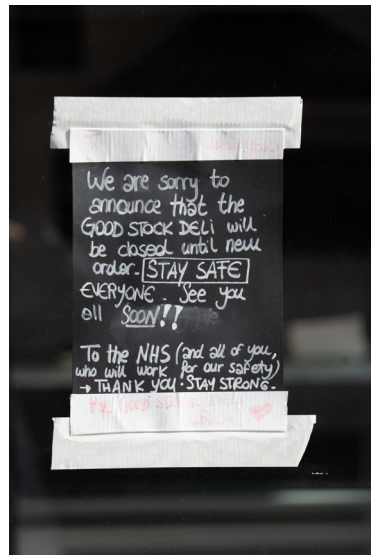 We are sorry to
announce that the
GOOD STOCK DELi will
be closed until new
order. STAY SAFE
EVERYONE. See you
all SOON!!
To the NHS (and all of you,
who will work for our safety)
→ THANK YOU. STAY STRONG.